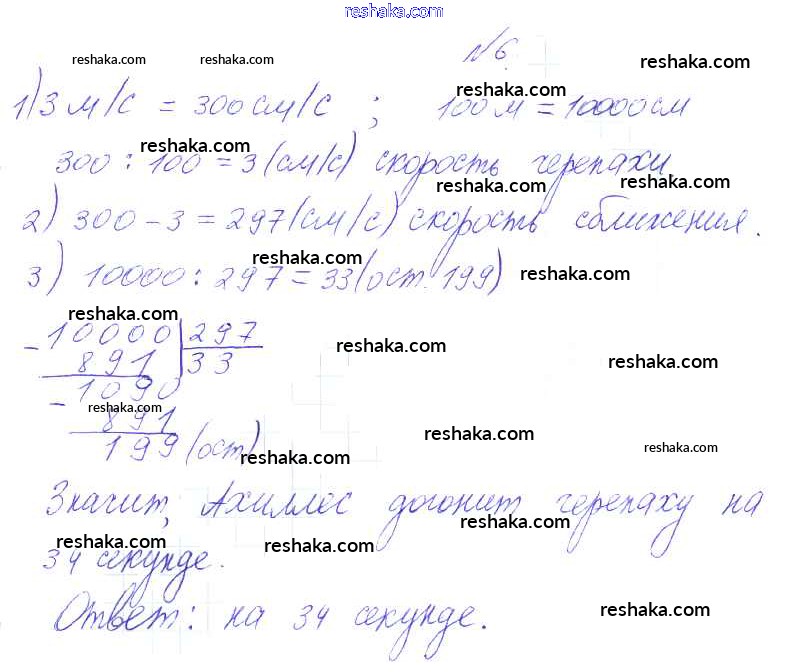 reshaka.com
reshaka.com reshaka.com №6. reshaka.com
1) 3 м/с = 300 см/с ; 100 м = 10000 см
reshaka.com
reshaka.com
300 : 100 = 3 (см/с) скорость черепахи.
reshaka.com reshaka.com
2) 300 - 3 = 297 (см/с) скорость сближения.
reshaka.com reshaka.com
3) 10000 : 297 = 33 (ост. 199)
reshaka.com
- 10000 | 297
891 | 33
reshaka.com reshaka.com
- 1090
reshaka.com
891
reshaka.com reshaka.com
199 (ост)
reshaka.com
Значит, Ахиллес догонит черепаху на
reshaka.com
reshaka.com reshaka.com
34 секунде.
reshaka.com
Ответ: на 34 секунде.